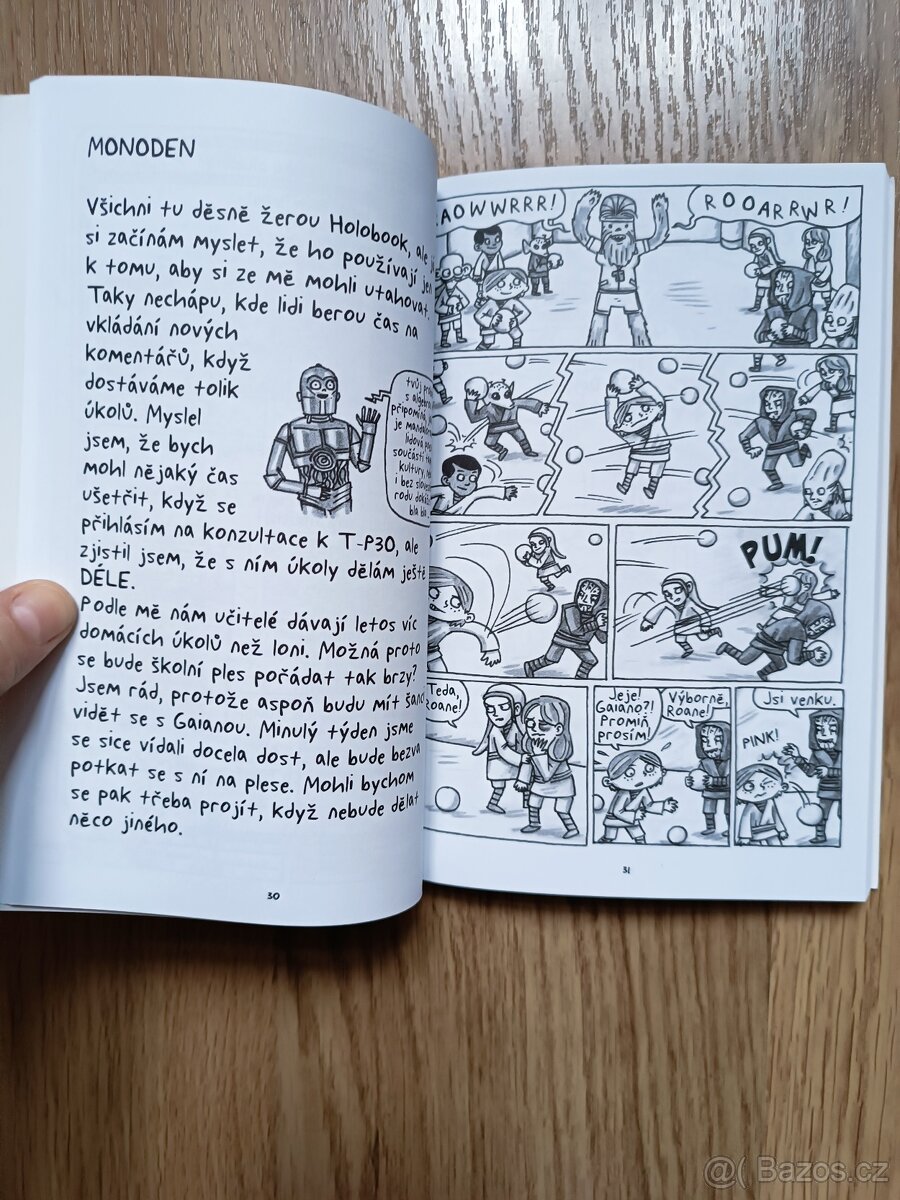 MONODEN
Všichni tu děsně žerou Holobook, ale
si začínám myslet, že ho používají jen
k tomu, aby si ze mě mohli utahovat.
Taky nechápu, kde lidi berou čas na
vkládání nových
komentářů, když
dostáváme tolik
úkolů. Myslel
jsem, že bych
mohl nějaký čas
ušetřit, když se
přihlásím na konzultace k T-P30, ale
zjistil jsem, že s ním úkoly dělám ještě
DÉLE.
Podle mě nám učitelé dávají letos víc
domácích úkolů než loni. Možná proto
se bude školní ples pořádat tak brzy?
Jsem rád, protože aspoň budu mít šanc
vidět se s Gaianou. Minulý týden jsme
se sice vídali docela dost, ale bude bezva
potkat se s ní na plese. Mohli bychom
se pak třeba projít, když nebude dělat
něco jiného.
tvůj
s algebr
připomín
je
lidová
součástí
kultury,
i bez
rodu
bla bla
30
AOWWRRR!
ROOARRWR!
PUM!
Teda,
Roane!
Jeje!
Gaiano?!
Promiň
prosím!
Výborně,
Roane!
Jsi venku.
PINK!
31
@( Bazos.cz